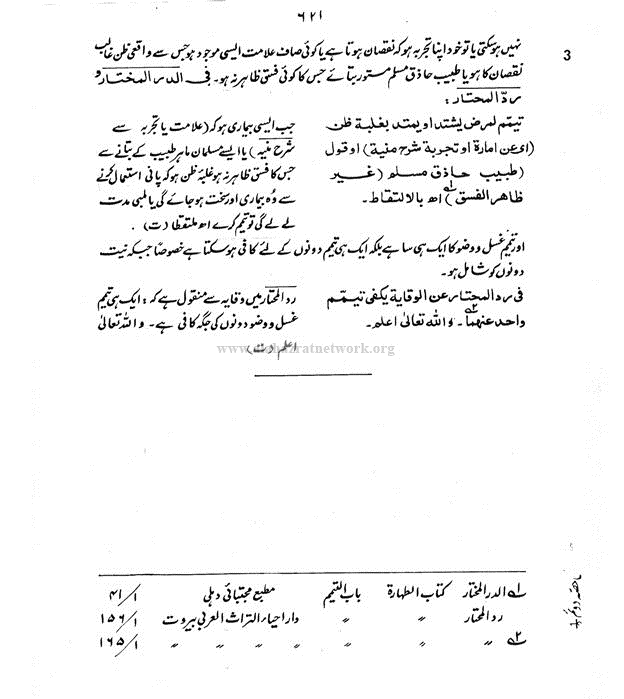 ۶۲۱
3
نہیں ہوسکتی یا تو خود اپنا تجربہ ہو کہ نقصان ہوتا ہے یا کوئی صاف علامت ایسی موجود ہو جس سے واقعی ظن غالب
نقصان کا ہو یا طبیب حاذق مسلم مستور بتائے جس کا کوئی فسق ظاہر نہ ہو۔ فی الدر المختار و
ردّ المحتار:
تیتمم لمرض یشتد او یمتد بغلبة ظن
(ای عن امارة او تجربة شرح منیة) او قول
(طبیب حاذق مسلم (غیر
ظاهر الفسق) اھ بالالتقاط۔
جب ایسی بیماری ہو کہ (علامت یا تجربہ سے
شرح منیہ) یا ایسے مسلمان ماہر طبیب کے بتانے سے
جس کا فسق ظاہر نہ ہو غلبۂ ظن ہو کہ پانی استعمال کرنے
سے وُہ بیماری اور سخت ہوجائے گی یا لمبی مدت
لے لے گی تو تیمم کرے اھ ملتقطا (ت)
اور تیمم غسل و وضو کا ایک ہی سا ہے بلکہ ایک ہی تیمم دونوں کے لئے کافی ہوسکتا ہے خصوصًا جبکہ نیت
دونوں کو شامل ہو۔
فی رد المحتار عن الوقایة یکفی تیمم
واحد عنهما۔ واللہ تعالیٰ اعلم۔
رد المحتار میں وقایہ سے منقول ہے کہ: ایک ہی تیمم
غسل و وضو دونوں کی جگہ کافی ہے۔ واللہ تعالیٰ
اعلم (ت)
۱ الدر المختار کتاب الطہارۃ باب التیمم مطبع مجتبائی دہلی ۱/۴۱
رد المحتار ″ ″ دار احیاء التراث العربی بیروت ۱/۱۵۶
۲ ″ ″ ″ ″ ″ ″ ″ ۱/۱۶۵